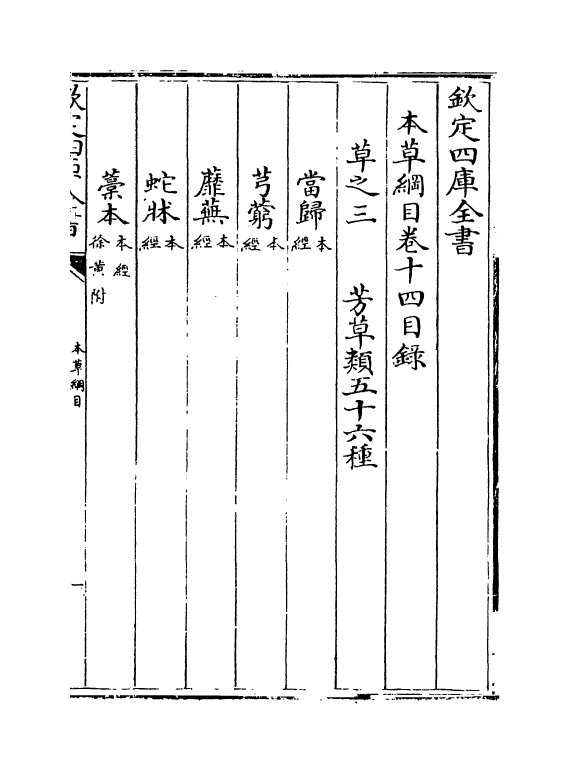 欽定四庫全書
本草綱目卷十四目錄
草之三　芳草類五十六種
當歸本經
芎藭本經
蘼蕪本經
蛇牀本經
藁本本經徐黃附
欽定四庫全書
本草綱目
一